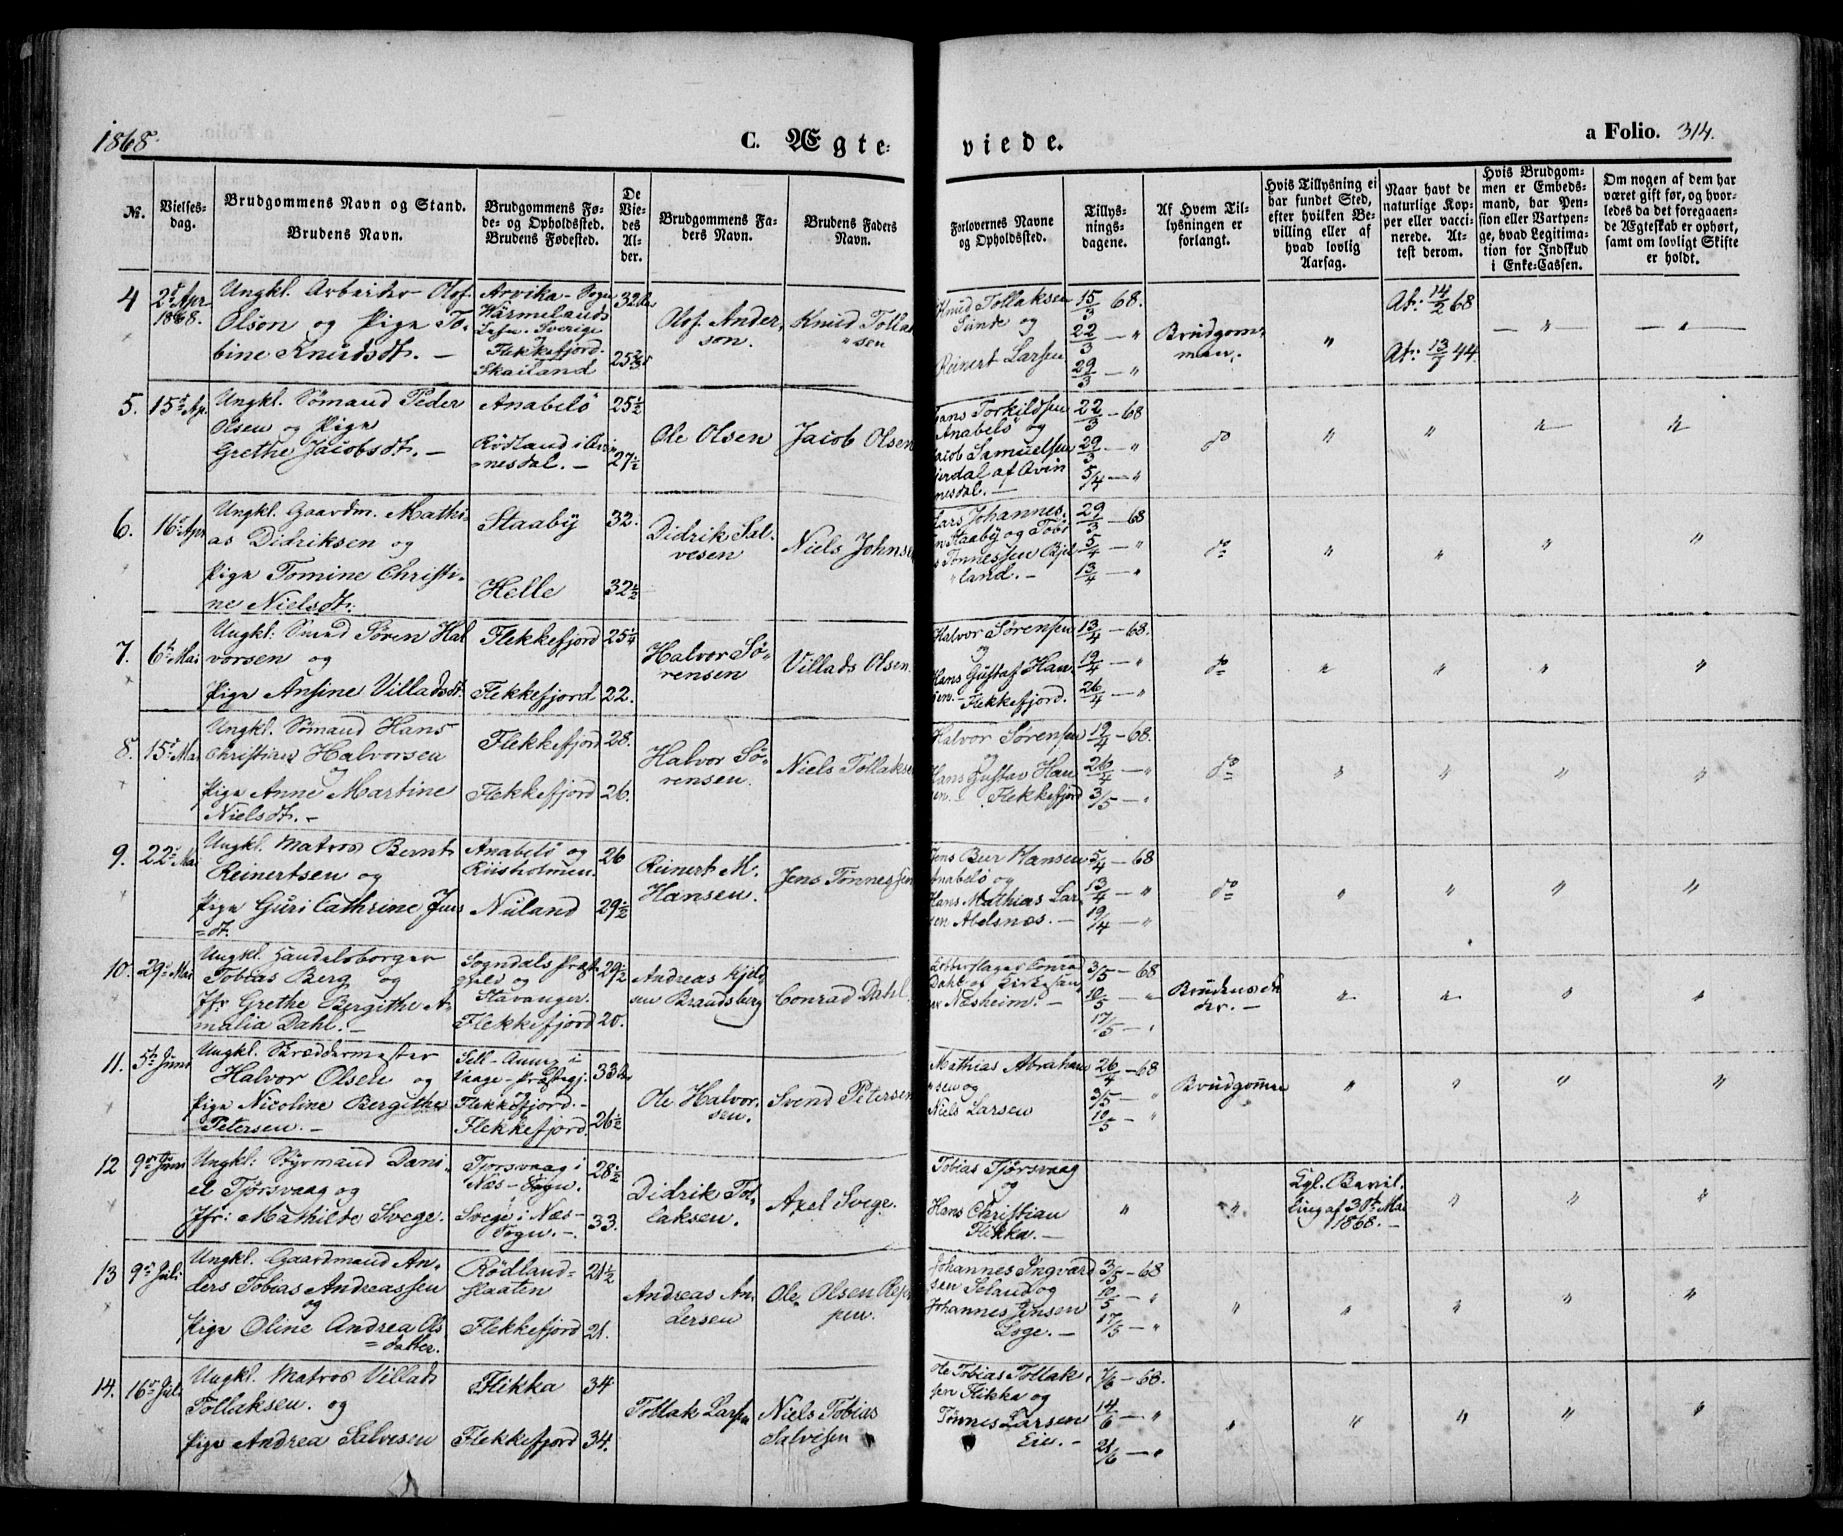 1868.
C. Ægte-
viede.
a Folio. 314.
№.
Vielses-
dag.
Brudgommens Navn og Stand.
Brudens Navn.
Brudgommens Fø-
de- og Opholdssted.
Brudens Fødested.
De
Vie-
des
Al-
der.
Brudgommens Fa-
ders Navn.
Brudens Faders
Navn.
Forlovernes Navne
og Opholdssted.
Tillys-
nings-
dagene.
Af Hvem Til-
lysningen er
forlangt.
Hvis Tillysning ei
har fundet Sted,
efter hvilken Be-
villing eller af
hvad lovlig
Aarsag.
Naar havt de
naturlige Kop-
per eller vacci-
nerede. At-
test derom.
Hvis Brudgom-
men er Embeds-
mand, har Pen-
sion eller Vartpen-
ge, hvad Legitima-
tion for Indskud
i Enke-Cassen.
Om nogen af dem har
været gift før, og hvor-
ledes da det foregaaen-
de Ægteskab er ophørt,
samt om lovligt Skifte
er holdt.
4
2den Apr.
1868.
Ungkl. Arbeider Olof
Olson og Pige To-
bine Knudsdt. —
Arvika - Sogn
Wärmelands
Lehn - Sverige
Flekkefjord.
Skailand
32
25
Olof Ander-
son.
Knud Tollak
"sen
Knud Tollaksen
Sunde og
Reinert Larsen
15/3 68.
22/3 — "
29/3 — "
Brudgom-
men.
"
At: 14/2 68
At: 13/7 44
— " —
— " —
5.
15de Ap.
Ungkl. Sømand Peder
Olsen og Pige
Grethe Jacobsdt. —
Anabelö
Rödland i Qvin
nesdal. —
25½
27½
Ole Olsen
Jacob Olsen
Hans Torkildsen
Anabelö og
Jacob Samuelsen
af Qvin
nesdal. —
22/3 — 68
29/3 — "
5/4 — "
do
"
"
"
"
6.
16de Apr
Ungkl. Gaardm. Mathi-
as Didriksen og
Pige Tomine Christi-
ne Nielsdt.
Staaby
Helle
32.
32½
Didrik Sal-
vesen
Niels Johns
Lars Johannes-
en Staaby og Tobi
s Tønnessen Bjel
"land. —
29/3 — 68
5/4 — "
13/4 — "
do
"
"
"
"
7.
6te Mai
Ungkl: Smed Sören Hal
vorsen og
Pige Ansine Villadsdt.
Flekkefjord
Flekkefjord
25¼
22.
Halvor Sö-
rensen
Villads Olsen.
Halvor Sörensen
og
Hans Gustaf Han-
sen. — Flekkefjord.
13/4 — 68.
19/4 — "
26/4 — "
do
"
"
"
"
8.
15de Mai
Ungkl. Sömand Hans
Christian Halvorsen
og
Pige Anne Martine
Nielsdt. —
Flekkefjord
Flekkefjord
28.
26.
Halvor Sö-
rensen.
Niels Tollaks
Halvor Sörensen
og
Hans Gustav Han
sen. Flekkefjord
19/4 — 68.
26/4 — "
3/5 — "
do
"
"
"
"
9.
22de Mai
Ungkl. Matros Bernt
Reinertsen og
Pige Guri Cathrine Jens
=dt.
Anabelö og
Riisholmen.
Nuland
26
29½
Reinert M.
Hansen.
Jens Tönnessen
Jens Beer Hansen
Anabelö og
Hans Mathias Lar
sen Abelsnæs. —
5/4 — 68
13/4 — "
19/4 — "
do
"
"
"
"
10.
29de Mai
Ungkl. Handelsborger
Tobias Berg og
Jfr. Grethe Bergithe A-
malia Dahl. —
Sogndals Præste
gjeld og
Stavanger.
Flekkefjord
29½
20.
Andreas Kjeld
sen Brandsberg
Conrad Dahl.
Kobberslager Conrad
Dahl og Kirkesan
ger Næsheim. —
3/5 — 68
10/5 — "
17/5 — "
Brudens Fa
der. —
"
"
"
"
11.
5te Juni
Ungkl. Skræddermester
Halvor Olsen og
Pige Nicoline Bergithe
Petersen. —
Vaage-Præstegj.
Flekkefjord. —
Flekkefjord.
33
26½
Ole Halvor-
sen.
Svend Petersen
Mathias Abraham
"sen og
Niels Larsen
26/4 — 68
3/5 — "
10/5 — "
Brudgomme
"
"
"
"
12
9de Juni
Ungkl: Styrmand Dani-
el Tjörsvaag og
Jfr: Mathilde Svege.
Tjorsvaag i
Næs-Sogn.
Svege i Næs-
Sogn. —
28½
33.
Didrik Tol-
laksen.
Axel Svege.
Tobias Tjörsvaag
og
Hans Christian
Flikka. —
"
"
Kgl. Bevil-
ling af 30te Mai
1868. —
"
"
"
13
9de Juli
Ungkl. Gaardmand An-
ders Tobias Andreassen
og
Pige Oline Andrea Ols
=datter.
Rödland-
slaaten
Flekkefjord
21½
21.
Andreas An-
dersen
Ole Olsen
Johannes Ingvard
sen Seland og
Johannes Jensen
Loge. —
3/5 — 68
10/5 — "
17/5 — "
"
"
"
"
"
14.
16de Juli
Ungkl. Matros Villads
Tollaksen. og
Pige Andrea Salvesen
Flikka
Flekkefjord
34
34.
Tollak Larsen
Niels Tobias
Salvesen
Ole Tobias Tollak
sen Flikka og
Tönnes Larsen
Eie. —
7/6 — 68.
14/6 — "
21/6 — "
"
"
"
"
"